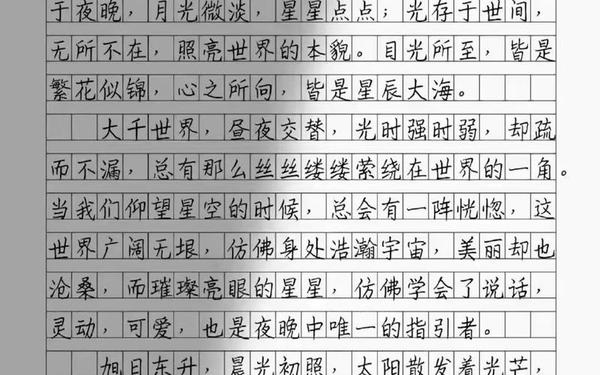 于夜晚，月光微淡，星星点点；光存于世间，
无所不在，照亮世界的本貌。目光所至，皆是
繁花似锦，心之所向，皆是星辰大海。
大千世界，昼夜交替，光时强时弱，却疏
而不漏，总有那么丝丝缕缕萦绕在世界的一角。
当我们仰望星空的时候，总会有一阵恍惚，这
世界广阔无垠，仿佛身处浩瀚宇宙，美丽却也
沧桑，而璀璨亮眼的星星，仿佛学会了说话，
灵动，可爱，也是夜晚中唯一的指引者。
旭日东升，晨光初照，太阳散发着光芒，